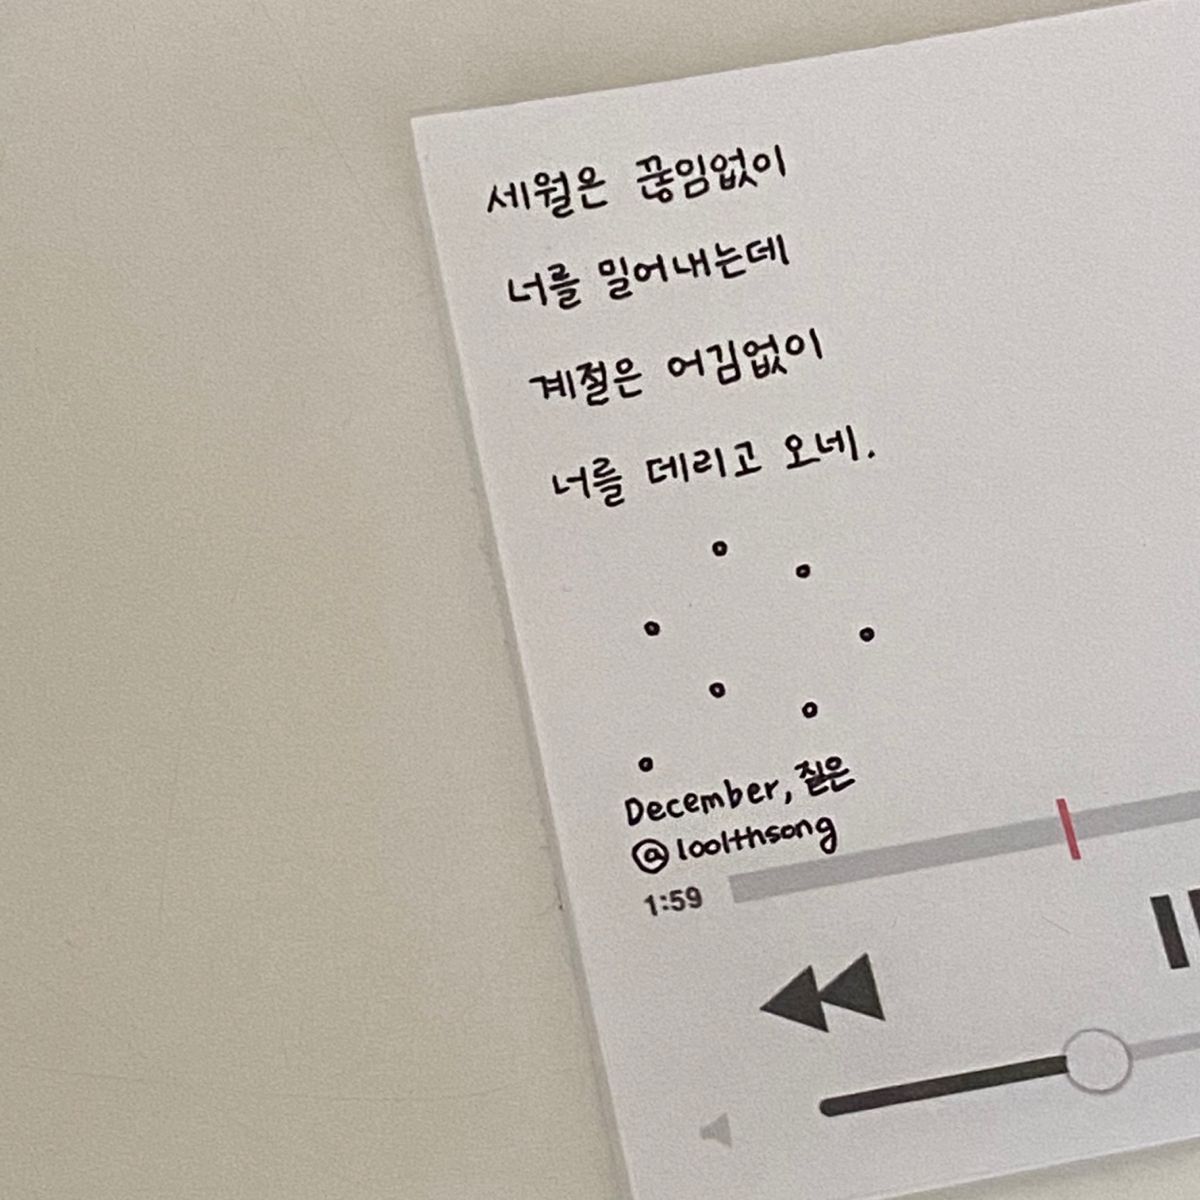 세월은 끊임없이
너를 밀어내는데
계절은 어김없이
너를 데리고 오네.
December, 짙은
@1001thsong
1:59